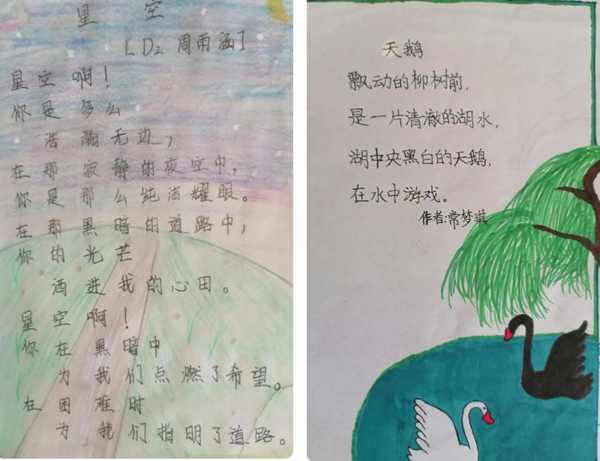 星空
【D2 周雨涵】
星空啊！
你是多么
浩瀚无边，
在那寂静的夜空中，
你是那么纯洁耀眼。
在那黑暗的道路中，
你的光芒
洒进我的心田。
星空啊！
你在黑暗中
为我们点燃了希望。
在困难时
为我们指明了道路。
天鹅
飘动的柳树前，
是一片清澈的湖水，
湖中央黑白的天鹅，
在水中游戏。
作者:常梦淇